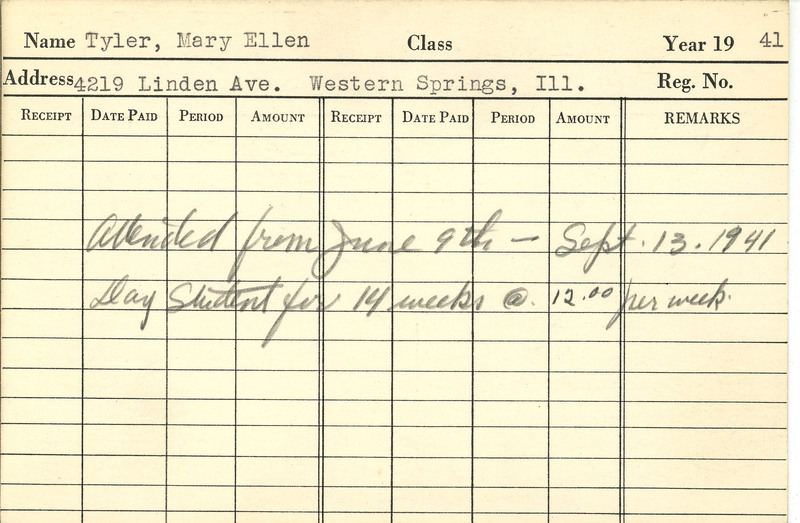 Name Tyler, Mary Ellen Class Year 19 41
Address 4219 Linden Ave. Western Springs, Ill. Reg. No.
RECEIPT DATE PAID PERIOD AMOUNT RECEIPT DATE PAID PERIOD AMOUNT REMARKS
Attended from June 9th — Sept. 13. 1941
Day Student for 14 weeks @ 12.00 per week.